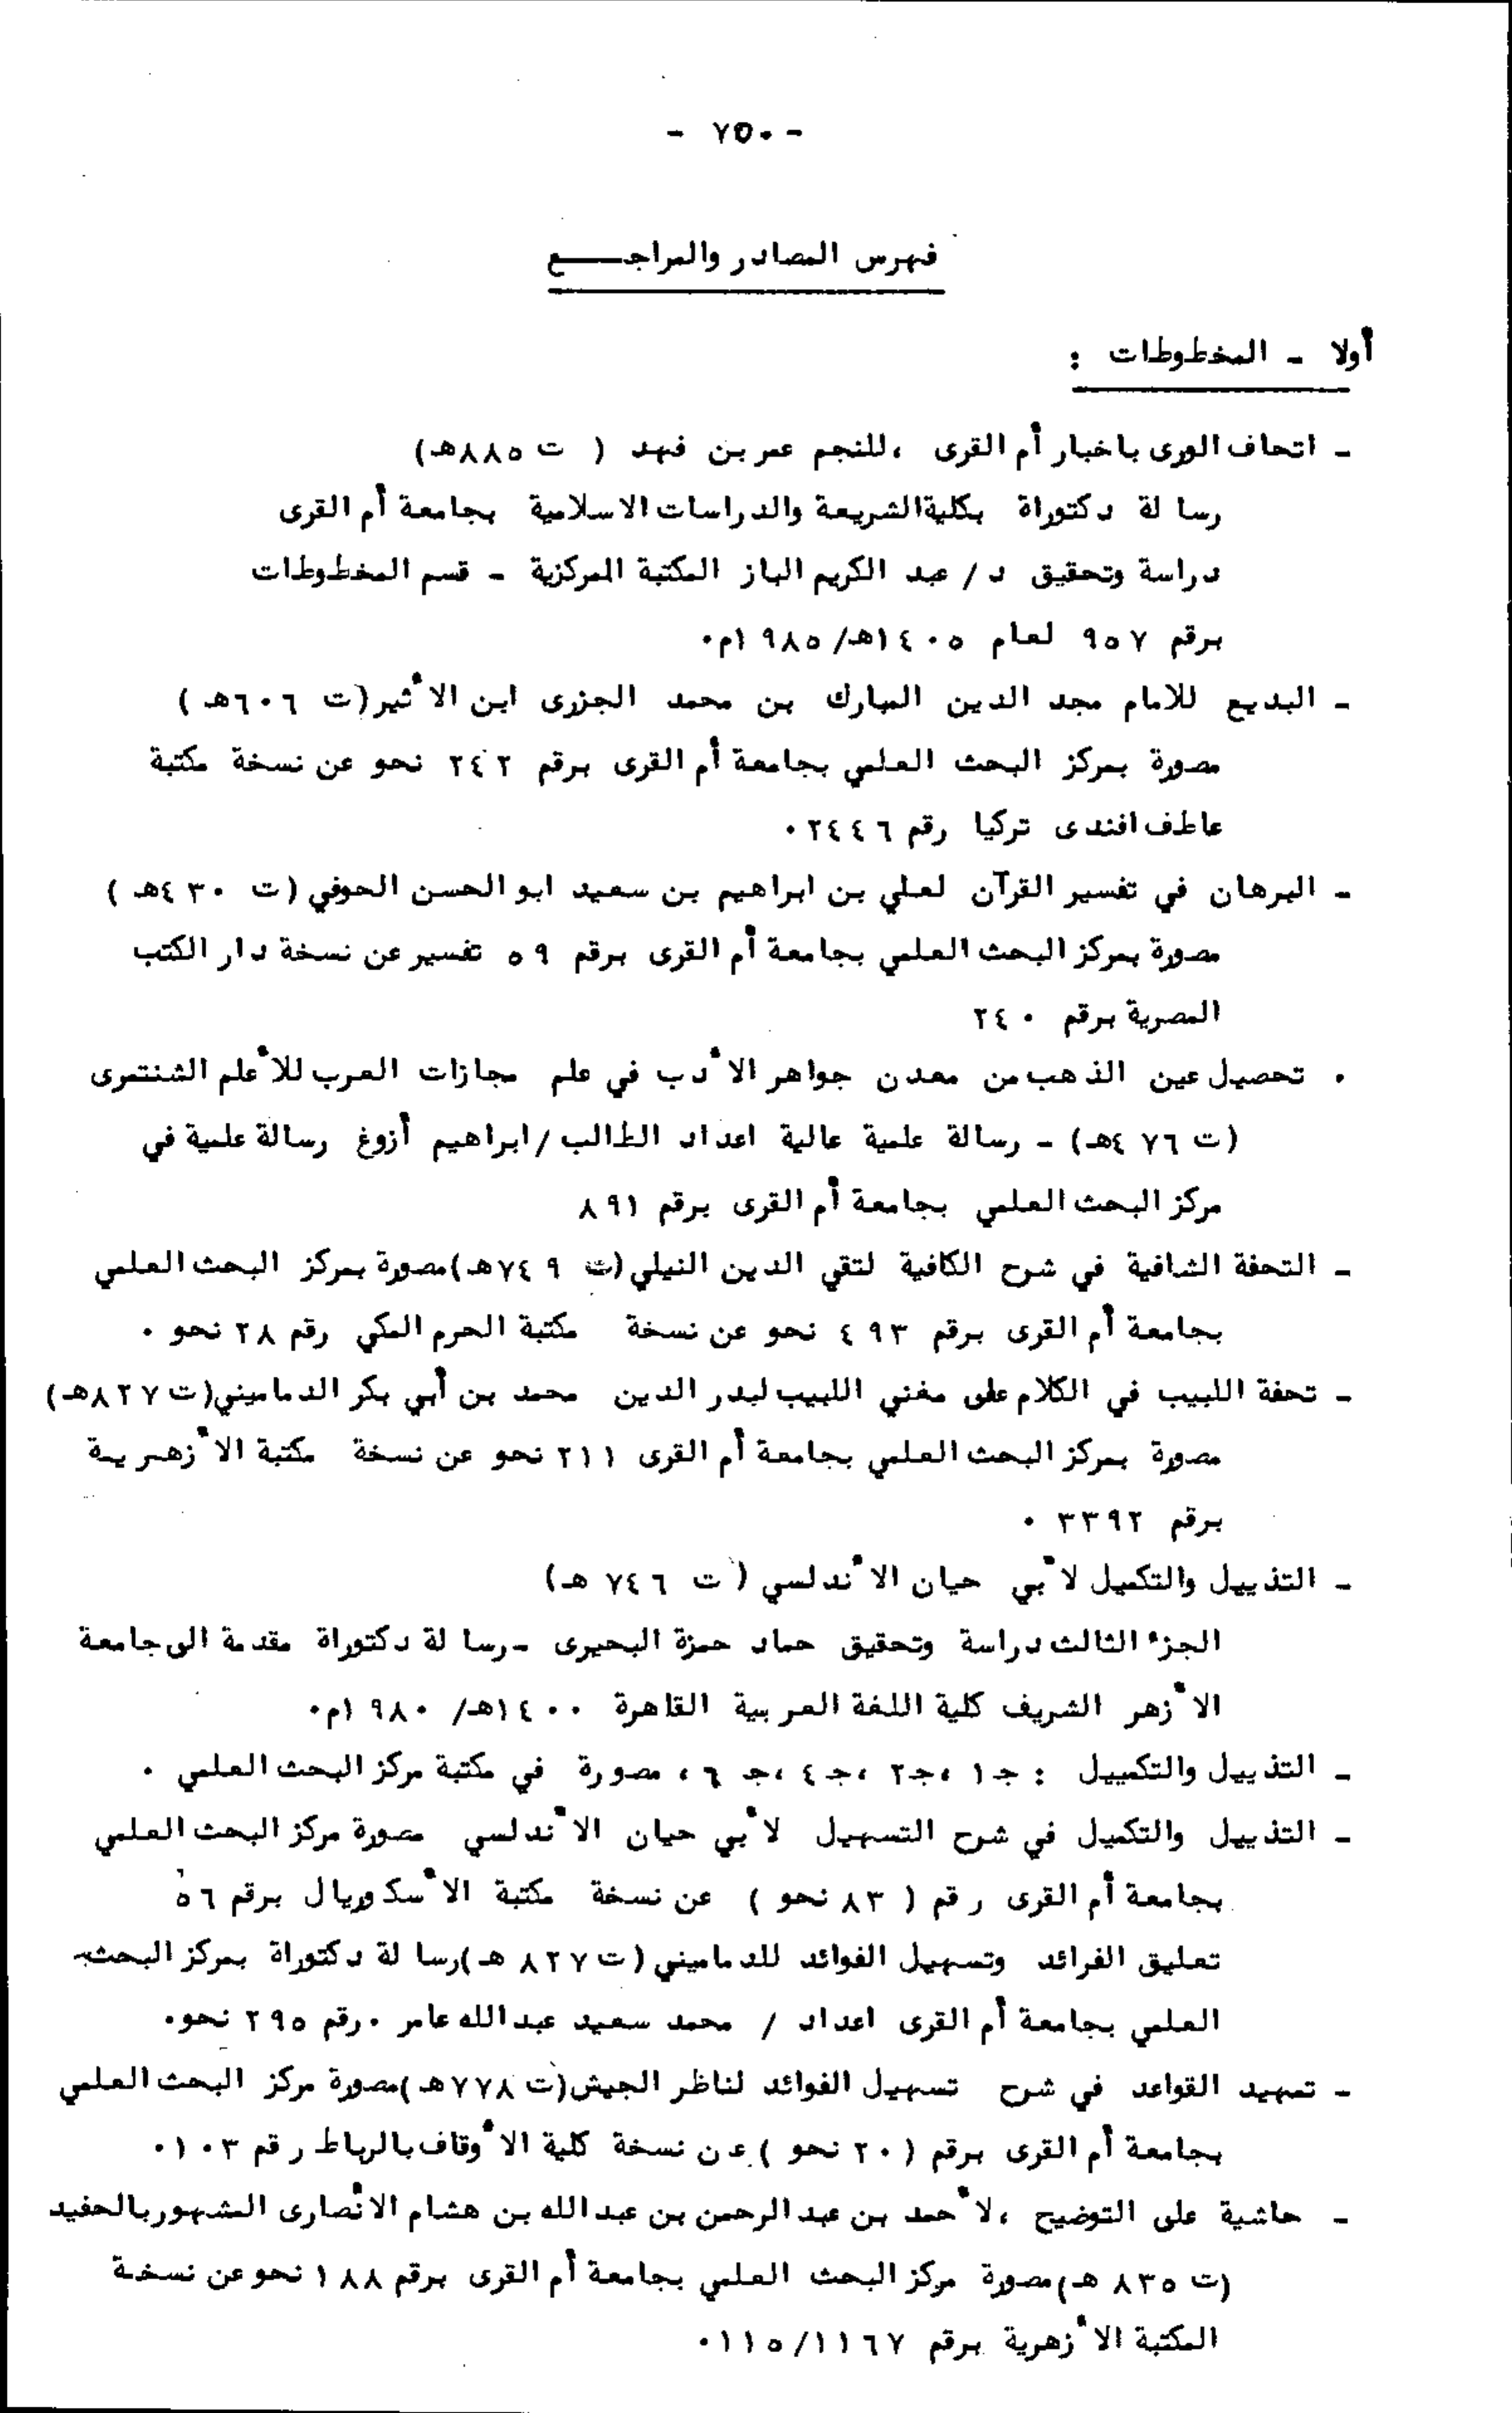 - ٧٥٠ -
فهرس المصادر والمراجـــــع
أولا - المخطوطات :
- اتحاف الورى باخبار أم القرى ،للنجم عمر بن فهد ( ت ٨٨٥هـ)
رسالة دكتوراة بكلية الشريعة والدراسات الاسلامية بجامعة أم القرى
دراسة وتحقيق د / عبد الكريم الباز المكتبة المركزية - قسم المخطوطات
برقم ٩٥٧ لعام ١٤٠٥هـ/ ١٩٨٥م٠
- البديع للامام مجد الدين المبارك بن محمد الجزرى ابن الأثير(ت ٦٠٦هـ )
مصورة بمركز البحث العلمي بجامعة أم القرى برقم ٢٤٢ نحو عن نسخة مكتبة
عاطف افندى تركيا رقم ٢٤٤٦ ٠
- البرهان في تفسير القرآن لعلي بن ابراهيم بن سعيد ابو الحسن الحوفي (ت ٤٣٠هـ )
مصورة بمركز البحث العلمي بجامعة أم القرى برقم ٥٩ تفسير عن نسخة دار الكتب
المصرية برقم ٢٤٠
٠ تحصيل عين الذهب من معدن جواهر الأدب في علم مجازات العرب للأعلم الشنتمرى
(ت ٤٧٦هـ) - رسالة علمية عالية اعداد الطالب /ابراهيم أزوغ رسالة علمية في
مركز البحث العلمي بجامعة أم القرى برقم ٨٩١
- التحفة الشافية في شرح الكافية لتقي الدين النيلي (ت ٧٤٩هـ)مصورة بمركز البحث العلمي
بجامعة أم القرى برقم ٤٩٣ نحو عن نسخة مكتبة الحرم المكي رقم ٢٨ نحو ٠
- تحفة اللبيب في الكلام على مغني اللبيب لبدر الدين محمد بن أبي بكر الدماميني(ت ٨٢٧هـ)
مصورة بمركز البحث العلمي بجامعة أم القرى ٢١١ نحو عن نسخة مكتبة الأزهرية
برقم ٣٣٩٢ ٠
- التذييل والتكميل لأبي حيان الأندلسي ( ت ٧٤٦ هـ)
الجزء الثالث دراسة وتحقيق حماد حمزة البحيرى -رسالة دكتوراة مقدمة الى جامعة
الأزهر الشريف كلية اللغة العربية القاهرة ١٤٠٠هـ/ ١٩٨٠م٠
- التذييل والتكمييل : جـ١ ،جـ٢ ،جـ٤ ،جـ ٦ ، مصورة في مكتبة مركز البحث العلمي ٠
- التذييل والتكميل في شرح التسهيل لأبي حيان الأندلسي مصورة مركز البحث العلمي
بجامعة أم القرى رقم ( ٨٣ نحو ) عن نسخة مكتبة الأسكوريال برقم ٥٦
تعليق الفرائد وتسهيل الفوائد للدماميني (ت ٨٢٧ هـ)رسالة دكتوراة بمركز البحث
العلمي بجامعة أم القرى اعداد / محمد سعيد عبد الله عامر ٠رقم ٢٩٥ نحو٠
- تمهيد القواعد في شرح تسهيل الفوائد لناظر الجيش(ت ٧٧٨هـ)مصورة مركز البحث العلمي
بجامعة أم القرى برقم ( ٢٠ نحو ) عن نسخة كلية الأوقاف بالرباط رقم ١٠٣ ٠
- حاشية على التوضيح ،لأحمد بن عبد الرحمن بن عبد الله بن هشام الأنصارى المشهور بالحفيد
(ت ٨٣٥ هـ)مصورة مركز البحث العلمي بجامعة أم القرى برقم ١٨٨ نحو عن نسخة
المكتبة الأزهرية برقم ١١٦٧/ ١١٥ ٠